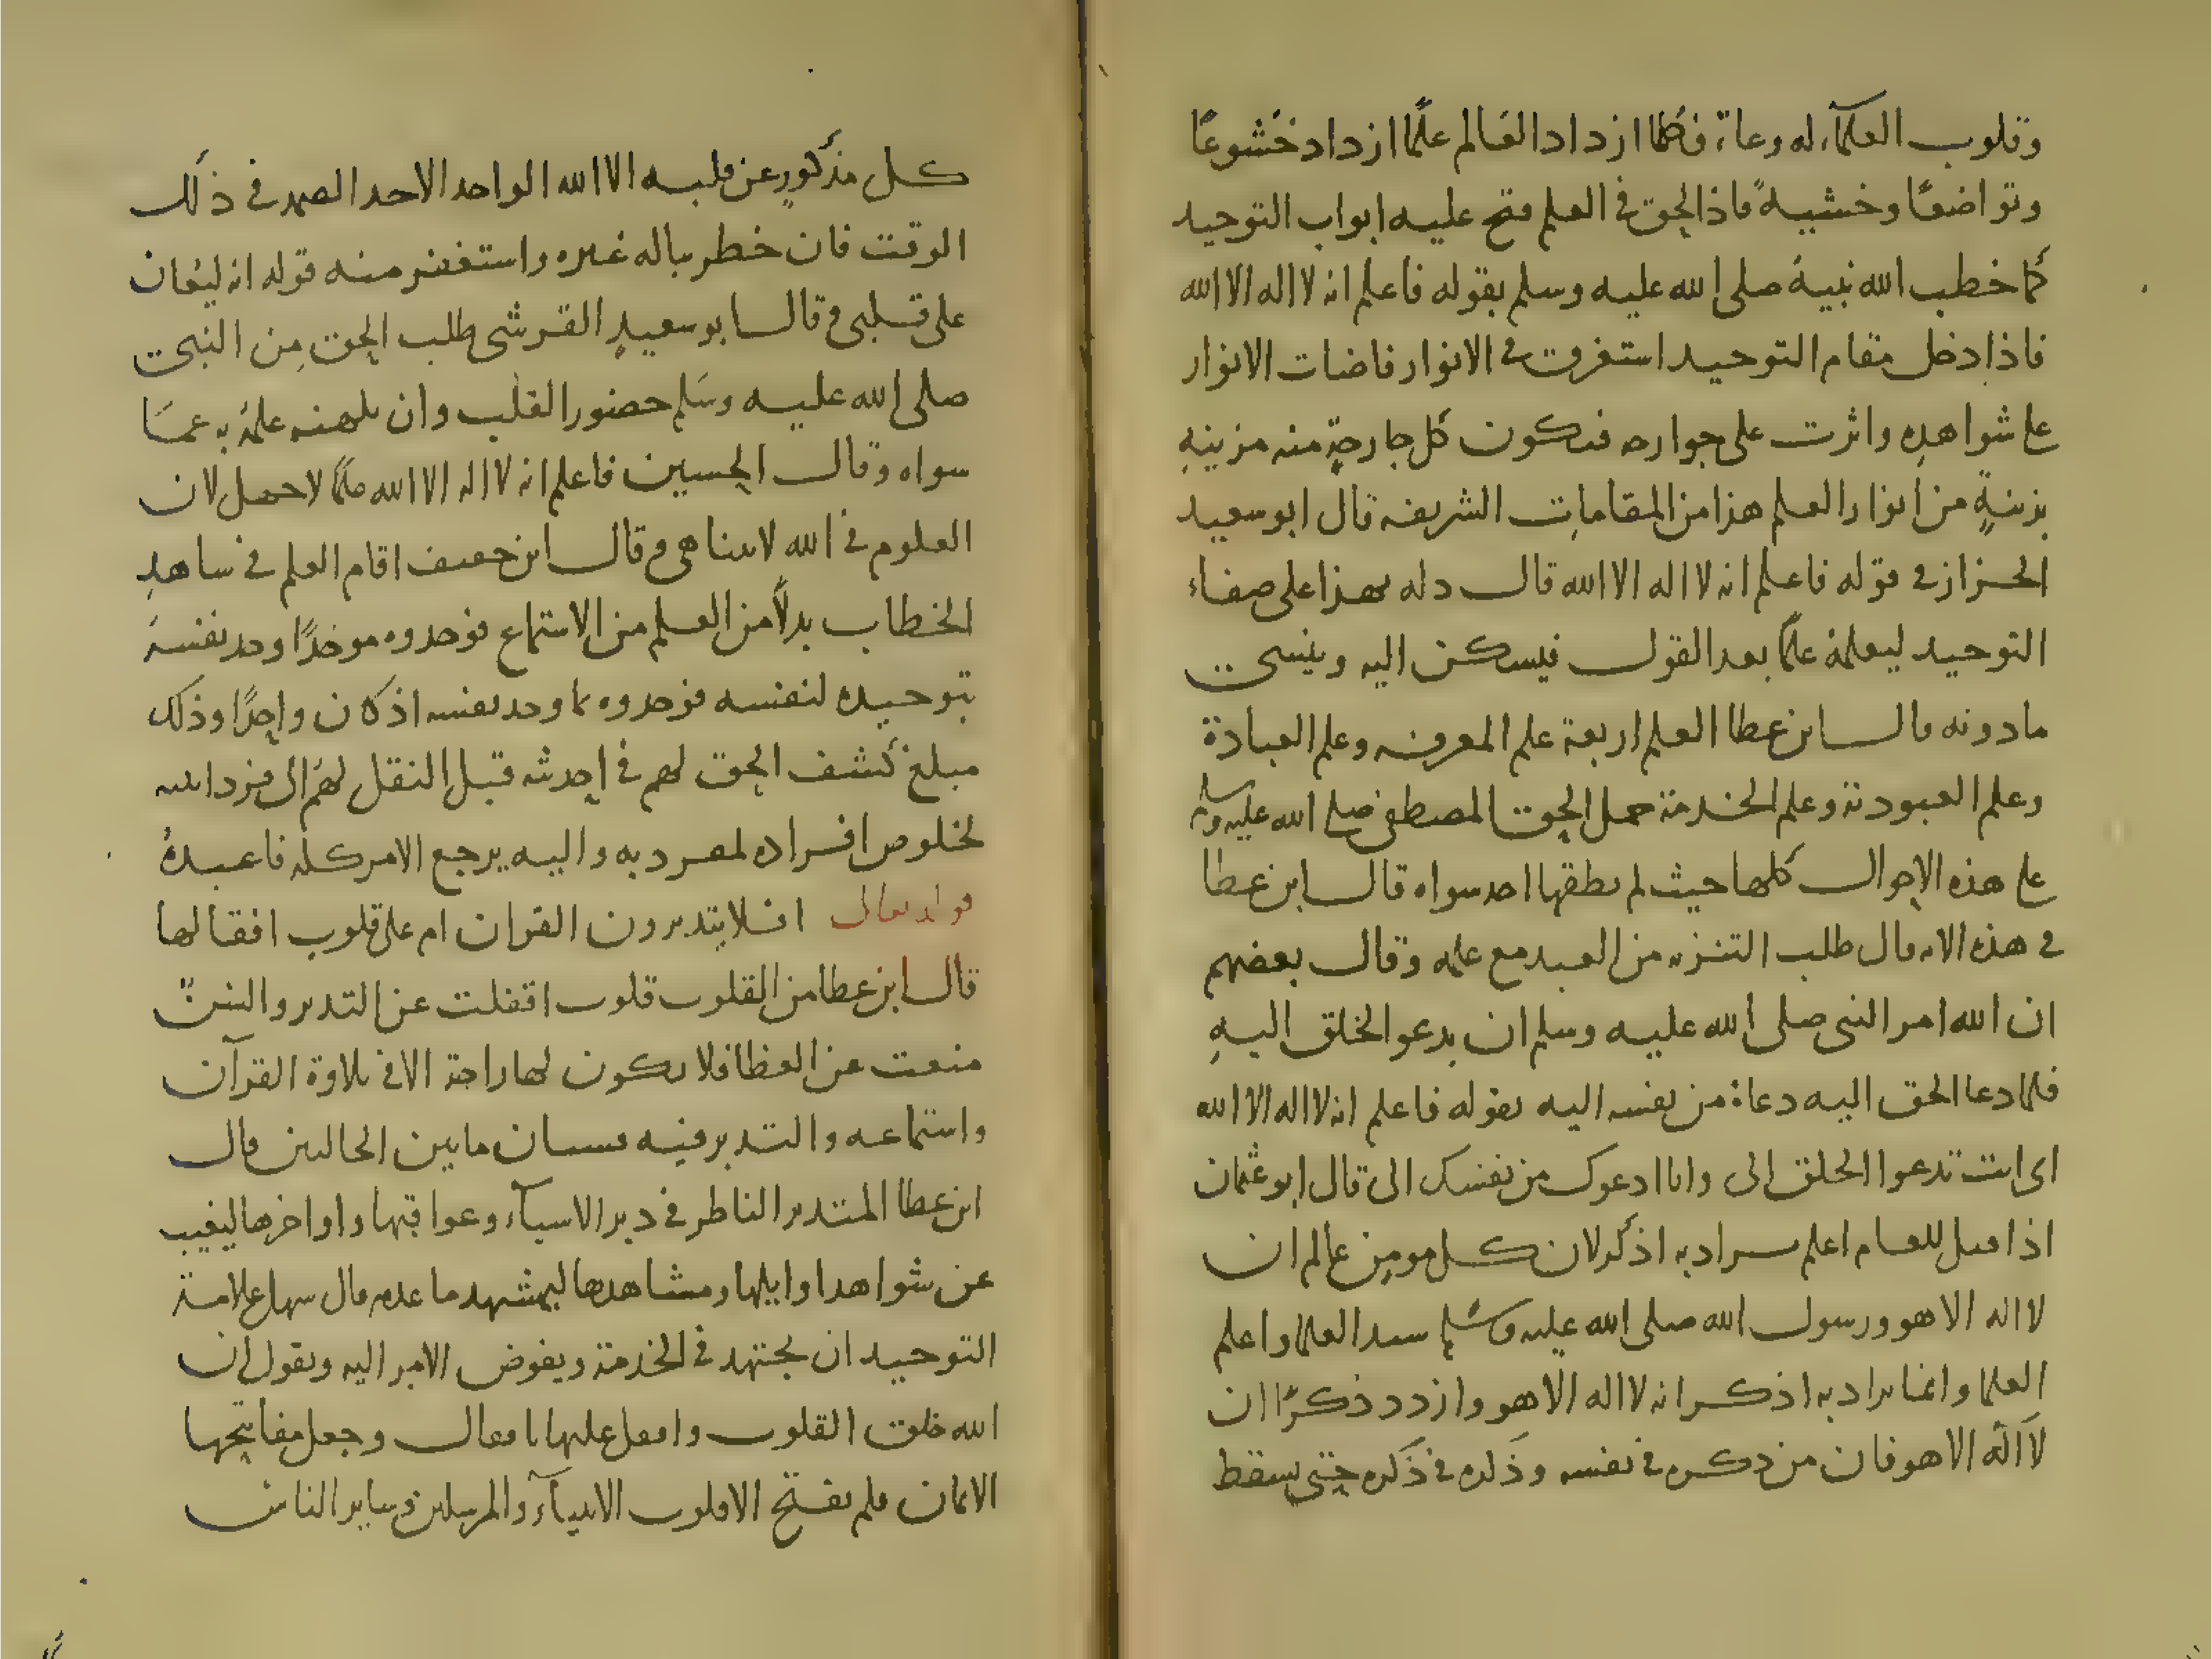 وقلوب العلماء له وعاة فكلما ازداد العالم علما ازداد خشوعا
وتواضعا وخشية فاذا لحق في العلم فتح عليه ابواب التوحيد
كما خطب الله نبيه صلى الله عليه وسلم بقوله فاعلم انه لا اله الا الله
فاذا دخل مقام التوحيد استغرقت في الانوار فاضات الانوار
على شواهده واثرت على جوارحه فتكون كل جارحة منه مزينة
بزينة من انوار العلم هذا من المقامات الشريفة قال ابو سعيد
الخزاز في قوله فاعلم انه لا اله الا الله قال دله بهذا على صفاء
التوحيد ليعلمه علما بعد القول فيسكن اليه وينسى
ما دونه قال ابن عطا العلم اربعة علم المعرفة وعلم العبادة
وعلم العبودية وعلم الخدمة حمل الحق المصطفى صلى الله عليه وسلم
على هذه الاحوال كلها حيث لم يطقها احد سواه قال ابن عطا
في هذه الايه قال طلب التنزيه من العبد مع علمه وقال بعضهم
ان الله امر النبي صلى الله عليه وسلم ان يدعو الخلق اليه
فلما دعا الحق اليه دعاه من نفسه اليه بقوله فاعلم انه لا اله الا الله
اى انت تدعوا الخلق الى وانا ادعوك من نفسك الى قال ابو عثمان
اذا قيل للعام اعلم يراد به اذكر لان كل مومن عالم ان
لا اله الا هو ورسول الله صلى الله عليه وسلم سيد العلما واعلم
العلما وانما يراد به اذكر انه لا اله الا هو وازدد ذكرا ان
لا اله الا هو فان من ذكره في نفسه وذكره في ذكره حتى يسقط
كل مذكور عن قلبه الا الله الواحد الاحد الصمد في ذلك
الوقت فان خطر بباله غيره واستغفر منه قوله انه ليغان
على قلبي وقال ابو سعيد القرشى طلب الحق من النبى
صلى الله عليه وسلم حضور القلب وان يلهنه علمه به عما
سواه وقال الحسين فاعلم انه لا اله الا الله علما لا جهل لان
العلوم في الله لا تتناهى وقال ابن خفيف اقام العلم في شاهد
الخطاب بدلا من العلم من الاستماع فوحدوه موحدا وحد نفسه
بتوحيده لنفسه فوحدوه بما وحد نفسه اذ كان واحدا وذلك
مبلغ كشف الحق لهم في قبل النقل لهم الى فردانيته
لخلوص افراده لمفرد به واليه يرجع الامر كله فاعبده
قوله تعالى افلا يتدبرون القران ام على قلوب اقفالها
قال ابن عطا من القلوب قلوب اقفلت عن التدبر والسن
منعت عن العظا فلا يكون لها راحة الا في تلاوة القرآن
واستماعه والتدبر فيه فسان ما بين الحالين قال
ابن عطا المتدبر الناظر في دبر الاشياء وعواقبها واواخرها ليغيب
عن شواهد اوايلها ومشاهدها ليشهد ما عدم قال سهل علامة
التوحيد ان يجتهد في الخدمة ويفوض الامر اليه ويقول ان
الله خلق القلوب واقفل عليها باقفال وجعل مفاتيحها
الايمان فلم يفتح الا قلوب الانبياء والمرسلين وساير الناس